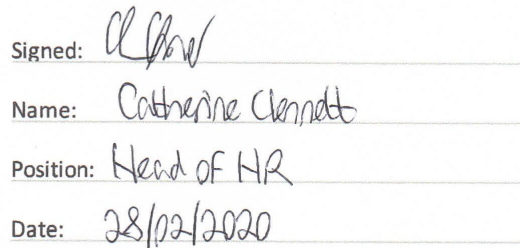 Signed:
Name: Catherine Clennett
Position: Head of HR
Date: 28/02/2020